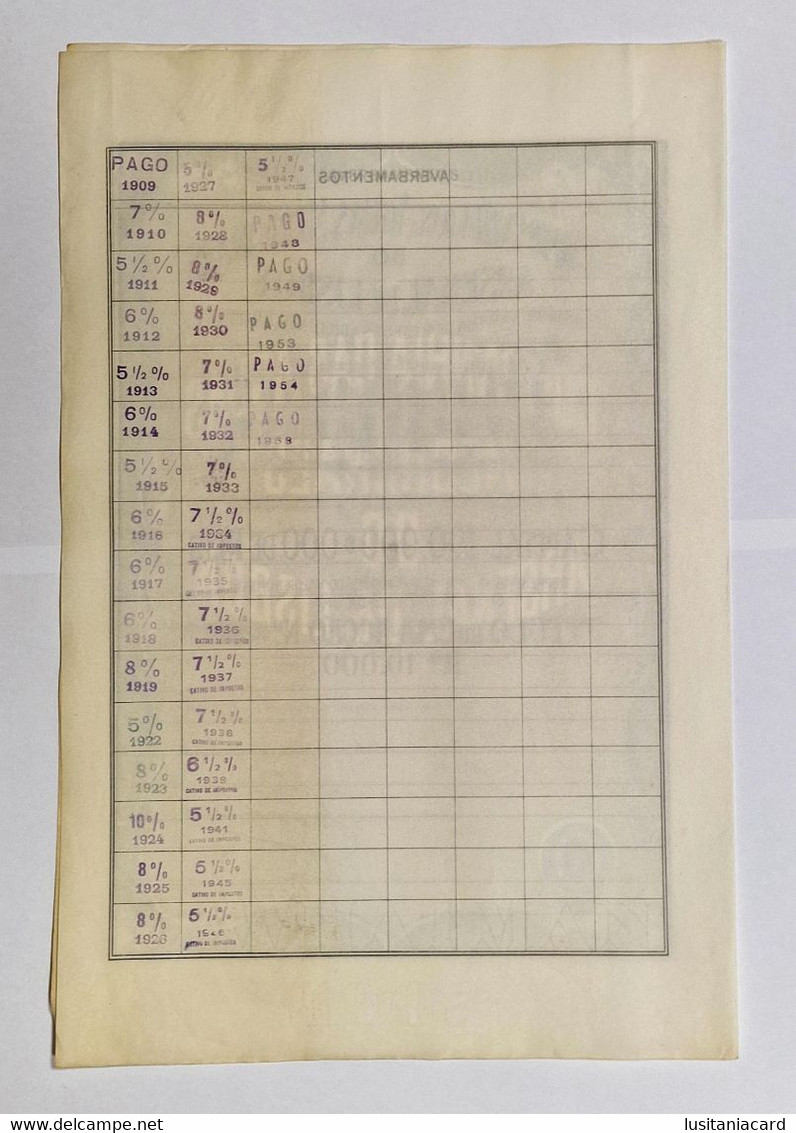 PAGO
1909
5%
1927
5 1/2 %
1947
AVERBAMENTOS
7%
1910
8%
1928
PAGO
1948
5 1/2 %
1911
8%
1929
PAGO
1949
6%
1912
8%
1930
PAGO
1953
5 1/2 %
1913
7%
1931
PAGO
1954
6%
1914
7%
1932
PAGO
5 1/2 %
1915
7%
1933
6%
1916
7 1/2 %
1934
CATIVO DE IMPOSTOS
6%
1917
7 1/2
1935
6%
1918
7 1/2 %
1936
CATIVO DE IMPOSTOS
8%
1919
7 1/2 %
1937
CATIVO DE IMPOSTOS
5%
1922
7 1/2 %
1938
CATIVO DE IMPOSTOS
8%
1923
6 1/2 %
1939
CATIVO DE IMPOSTOS
10%
1924
5 1/2 %
1941
CATIVO DE IMPOSTOS
8%
1925
5 1/2 %
1945
CATIVO DE IMPOSTOS
8%
1926
5 1/2 %
1946
CATIVO DE IMPOSTOS
Delcampe.com
lusitaniacard